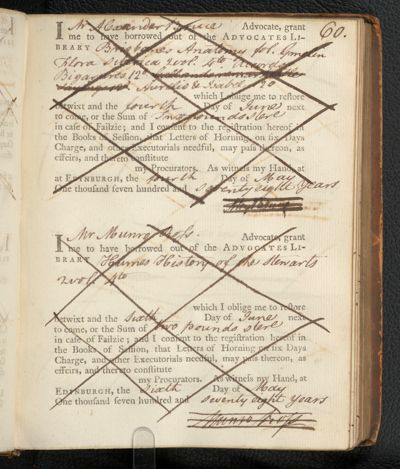 60.
I Mr Alexander Bruce Advocate, grant
me to have borrowed out of the ADVOCATES LI-
BRARY Anatomy fol.
Flora Siberica 2 vol. 4to
Bigarures 12o
which I oblige me to restore
betwixt and the fourth Day of June next
to come, or the Sum of pounds stere
in case of Failzie; and I consent to the registration hereof in
the Books of Session, that Letters of Horning, on six Days
Charge, and other Executorials needful, may pass thereon, as
effeirs, and thereto constitute
my Procurators. As witness my Hand, at
at EDINBURGH, the fourth Day of May
One thousand seven hundred and seventy eight years
I Mr Munro Ross. Advocate, grant
me to have borrowed out of the ADVOCATES LI-
BRARY Humes History of the Stewarts
2 vol. 4to
which I oblige me to restore
betwixt and the sixth Day of June next
to come, or the Sum of two pounds stere
in case of Failzie; and I consent to the registration hereof in
the Books of Session, that Letters of Horning on six Days
Charge, and other Executorials needful, may pass thereon, as
effeirs, and thereto constitute
my Procurators. As witness my Hand, at
EDINBURGH, the sixth Day of May
One thousand seven hundred and seventy eight years
Munro Ross